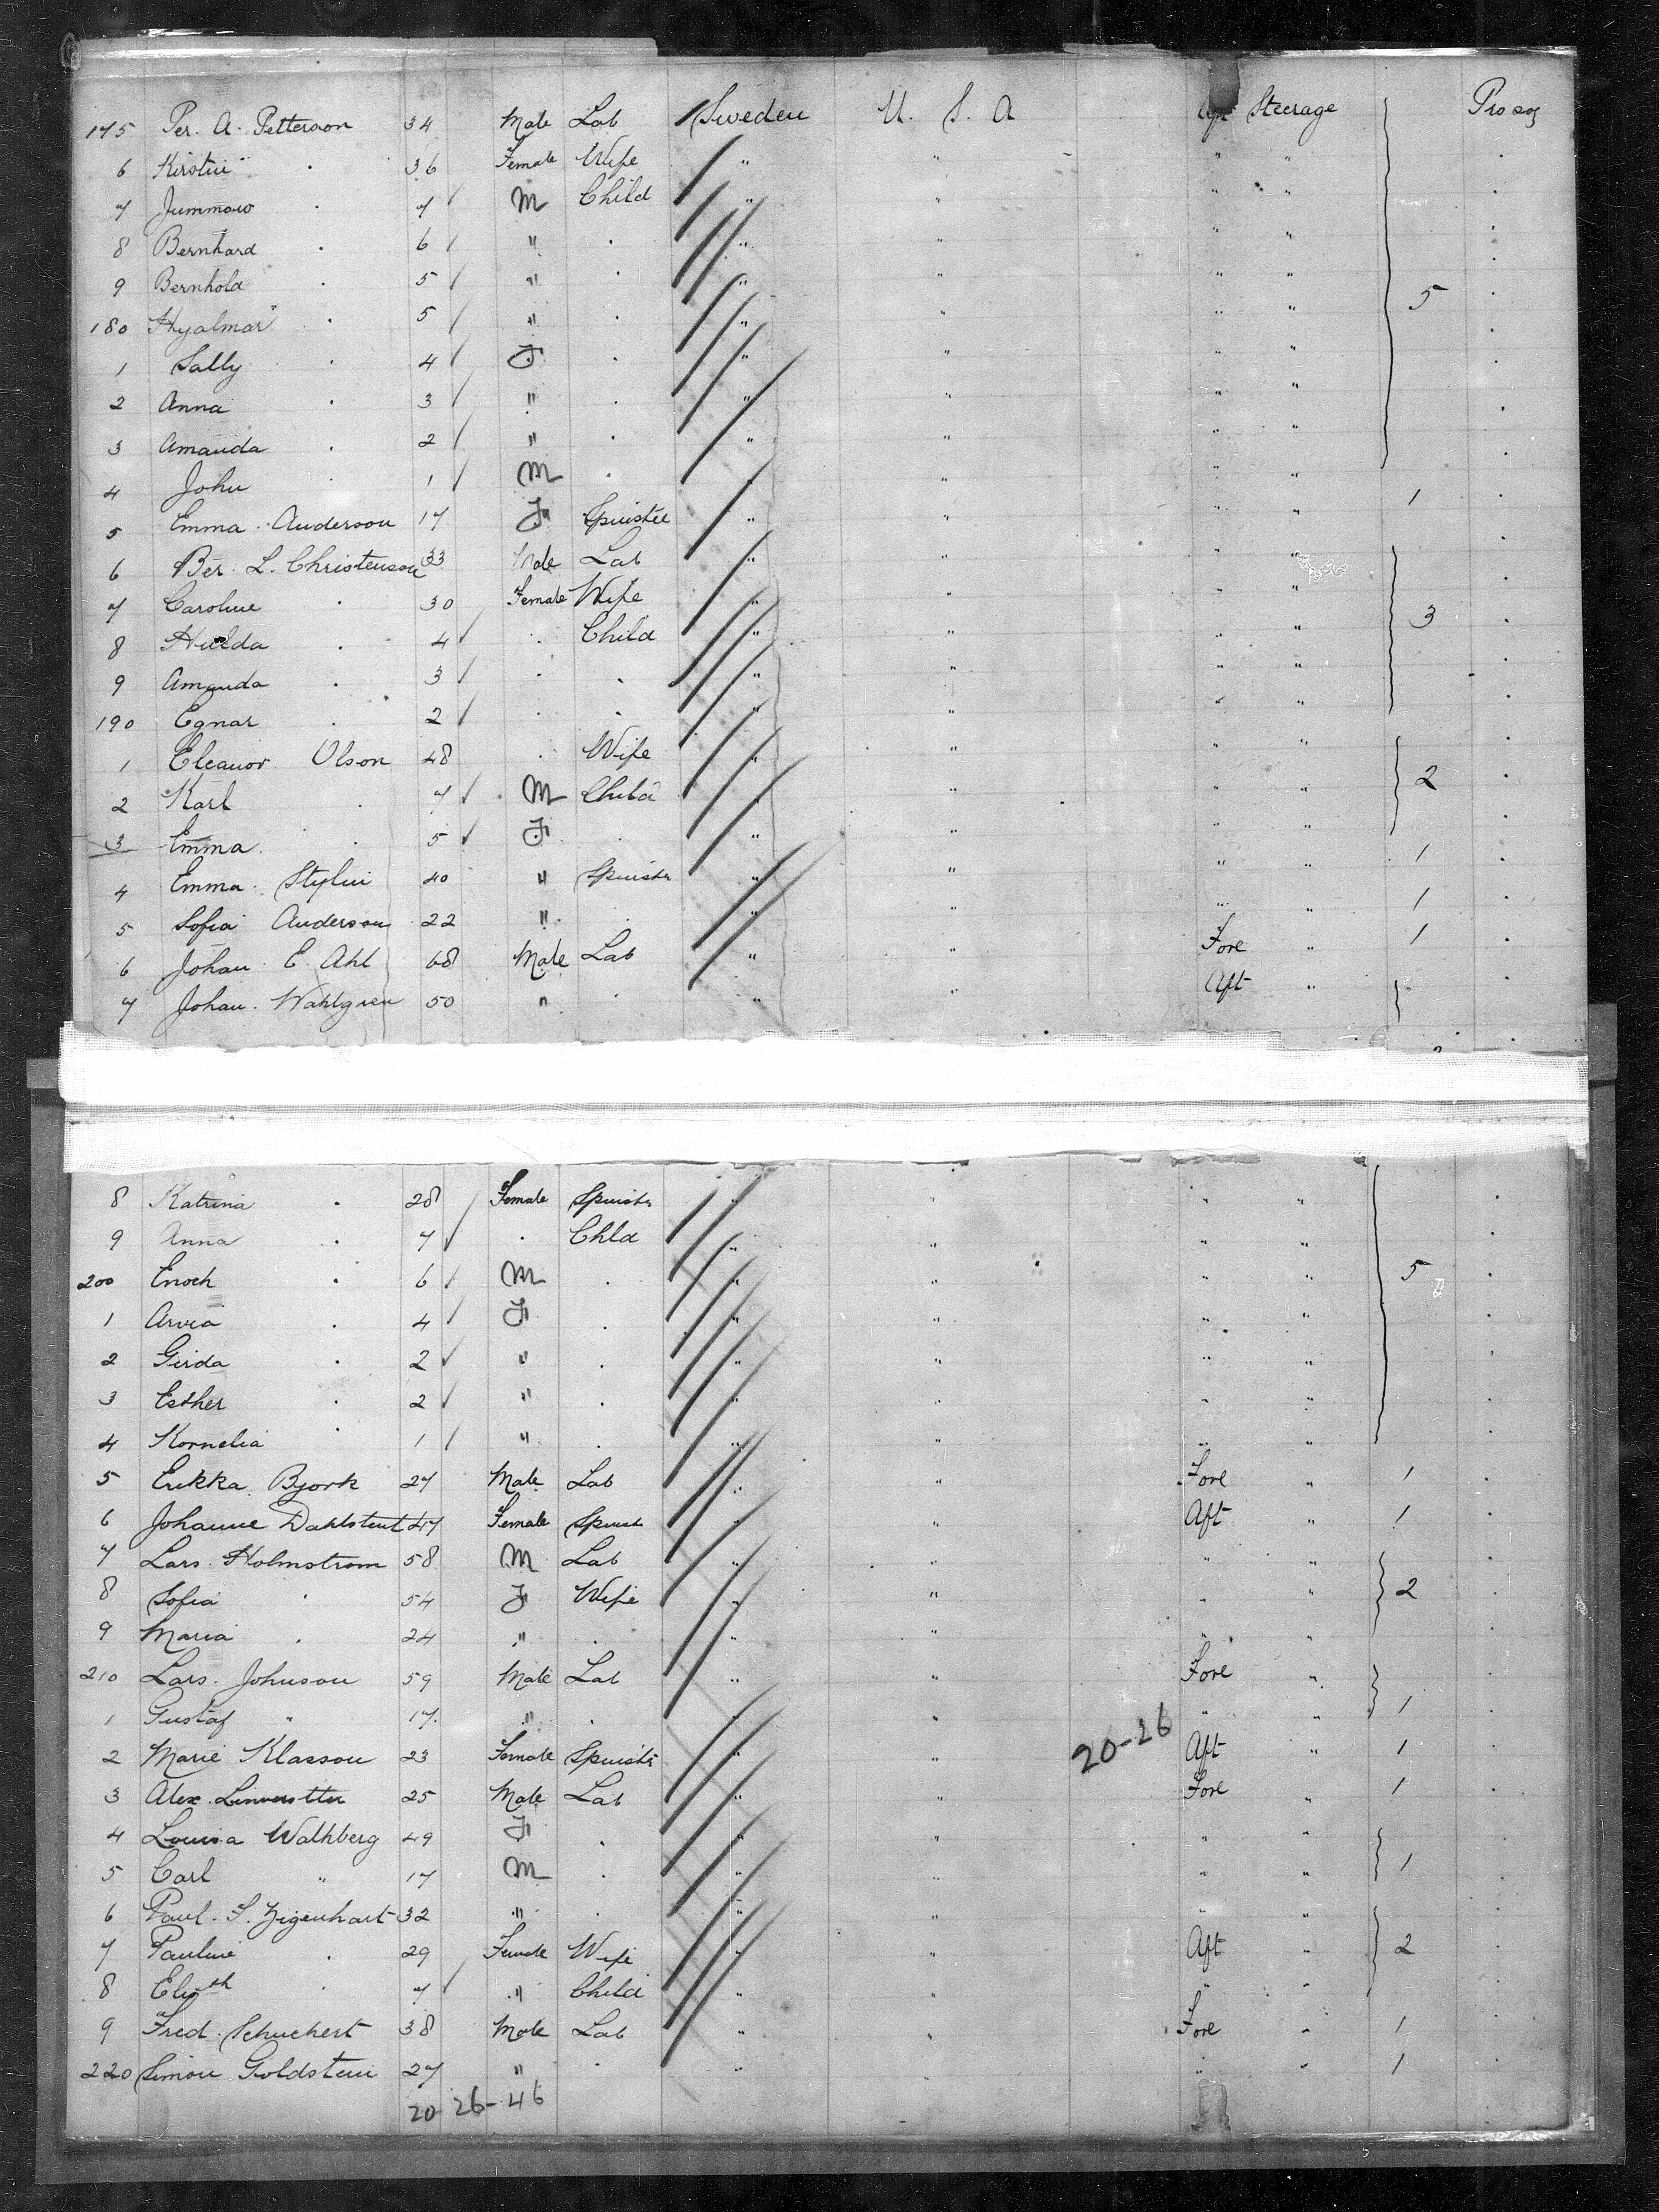 175 Per. A. Petterson 34 Male Lab Sweden U. S. A Aft Steerage Pro sog
6 Kirstin " . 36 Female Wife " " " " .
7 . 7 M Child " " " " .
8 Bernhard . 6 " . " " " " .
9 Bernhold . 5 " . " " " " .
180 Hyalmar " . 5 " . " " " " 5 .
1 Sally . 4 F . " " " " .
2 Anna . 3 " . " " " " .
3 Amanda . 2 " . " " " " .
4 John . 1 M . " " " " .
5 Emma Anderson 17 F Spinster " " " " 1 .
6 Ber. L. Christenson 33 Male Lab " " " " .
7 Caroline . 30 Female Wife " " " " .
8 Hulda . 4 . Child " " " " 3 .
9 Amanda . 3 . . " " " " .
190 Egnar . 2 . . " " " " .
1 Eleanor Olson 48 . Wife " " " " .
2 Karl . 7 M Child " " " " 2 .
3 Emma . 5 F . " " " " .
4 Emma 40 " Spinster " " " " 1 .
5 Sofia Anderson 22 " . " " " " 1 .
6 Johan E. Ahl 68 Male Lab " " Fore " 1 .
7 Johan. Wahlgren 50 " . " " Aft " .
8 Katrina . 28 Female Spinster " " " " .
9 Anna . 7 . Chld " " " " .
200 Enoch . 6 M . " " " " 5 .
1 Arvia . 4 F . " " " " .
2 Girda . 2 " . " " " " .
3 Esther . 2 " . " " " " .
4 Kornelia . 1 " . " " " " .
5 Erikka Bjork 27 Male Lab " " Fore " 1 .
6 Johanne 47 Female Spinst " " Aft " 1 .
7 Lars Holmstrom 58 M Lab " " " " .
8 Sofia . 54 F Wife " " " " 2 .
9 Maria . 24 " . " " " " .
210 Lars. Johnson 59 Male Lab " " Fore " .
1 Gustaf " 17 " . " " " " 1 .
2 Marie Klasson 23 Female Spinster " " 20-26 Aft " 1 .
3 Alex. 25 Male Lab " " Fore " 1 .
4 Louisa Wathberg 49 F . " " " " .
5 Carl " 17 M . " " " " 1 .
6 Paul. S. Zigenhart 32 " . " " " " .
7 Pauline . 29 Female Wife " " Aft " 2 .
8 Elisth . 7 " Child " " " " .
9 Fred. Schuchert 38 Male Lab " " Fore " 1 .
220 Simon Goldstein 27 " . " " " " 1 .
20-26-46